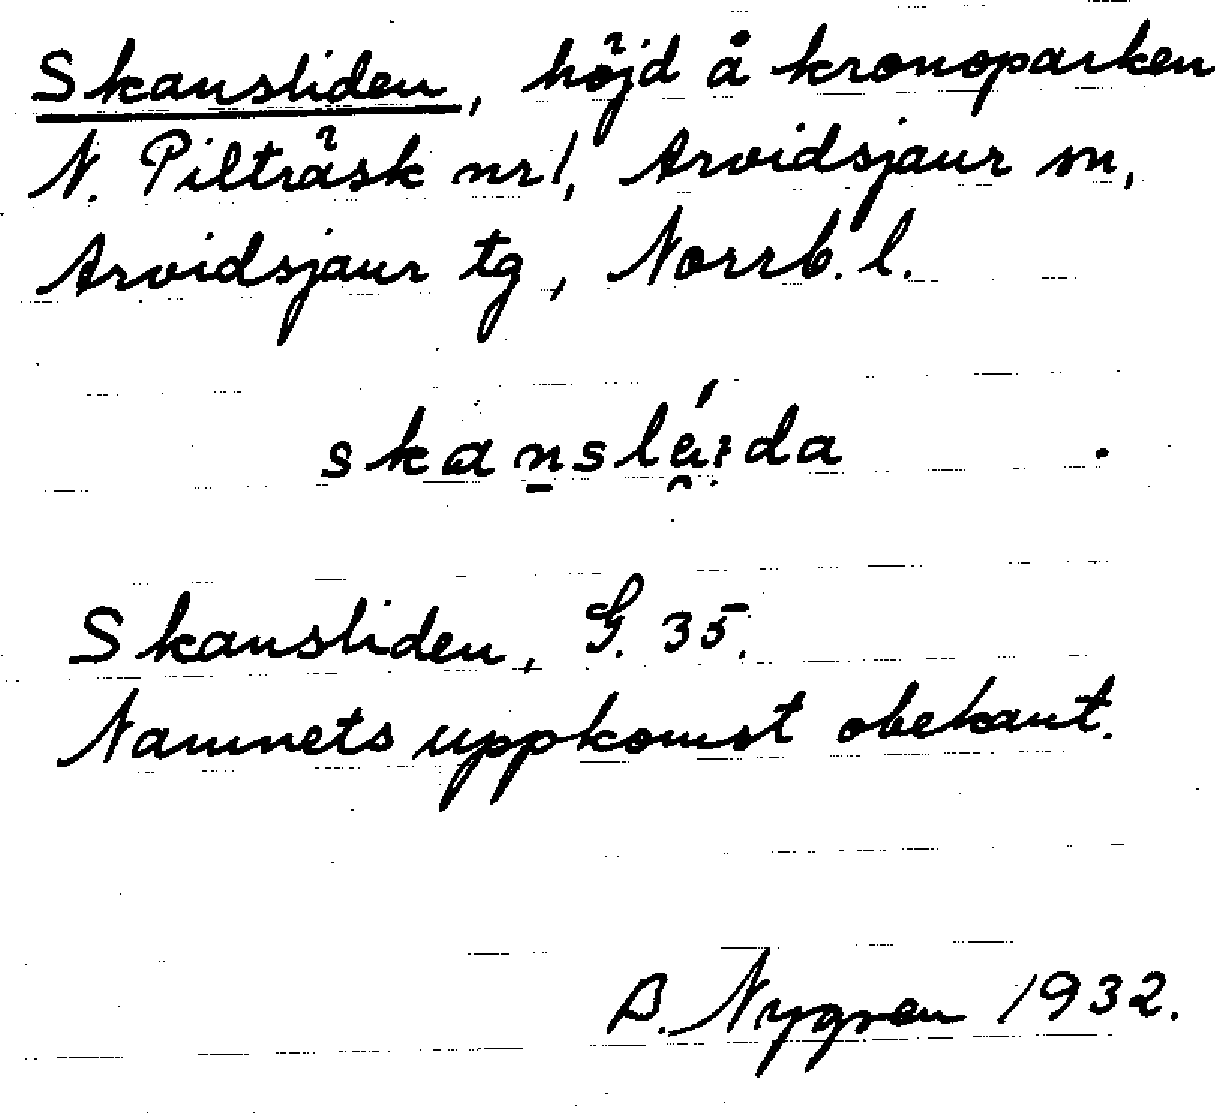 Skansliden, höjd å kronoparken
N. Pilträsk nr 1, Arvidsjaur sn,
Arvidsjaur tg, Norrb. l.
skansléi̯da
Skansliden, G. 35.
Namnets uppkomst obekant.
B. Nygren 1932.